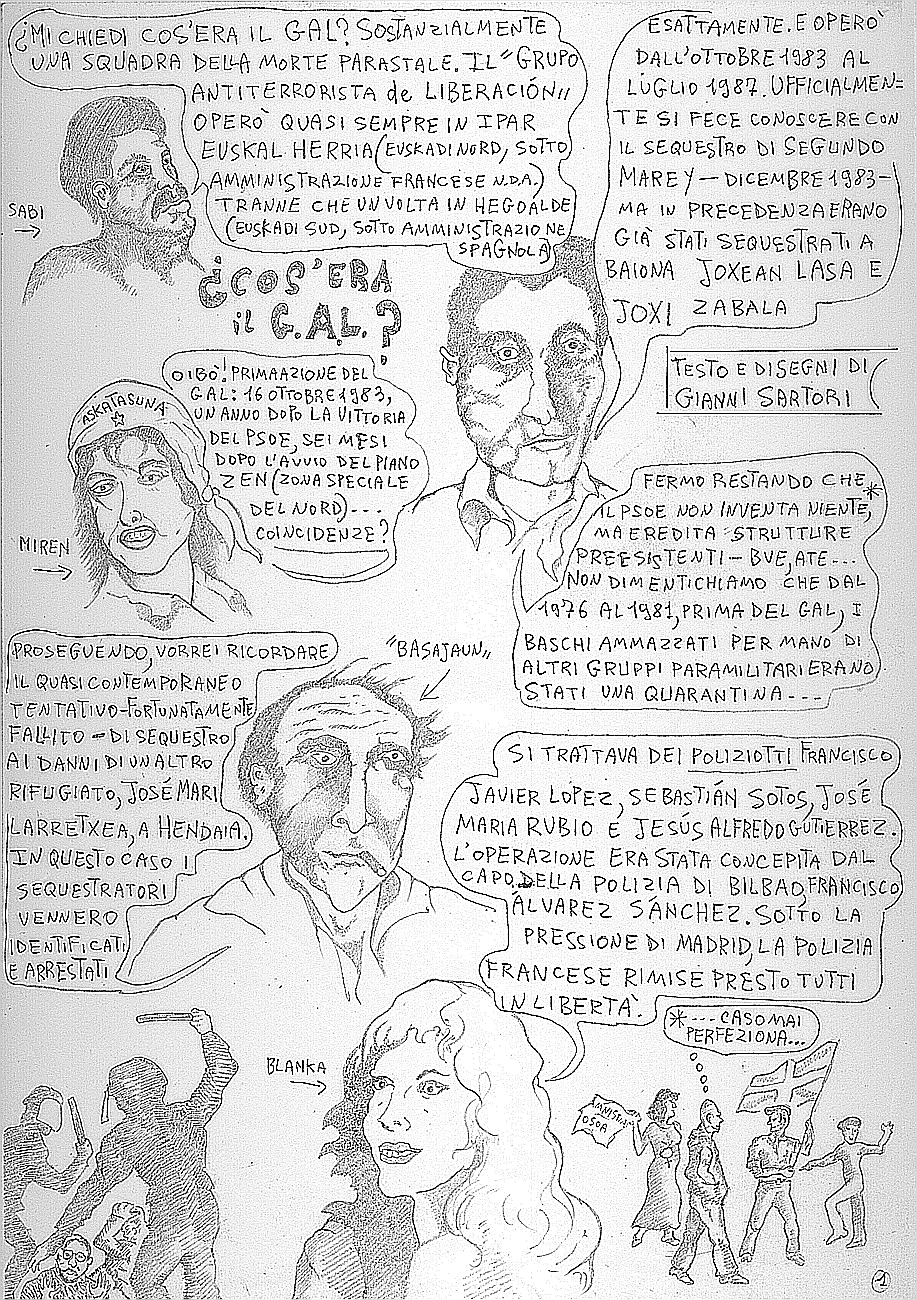 ¿MI CHIEDI COS'ERA IL GAL? SOSTANZIALMENTE
UNA SQUADRA DELLA MORTE PARASTALE. IL "GRUPO
ANTITERRORISTA de LIBERACIÓN"
OPERÒ QUASI SEMPRE IN IPAR
EUSKAL HERRIA (EUSKADI NORD, SOTTO
AMMINISTRAZIONE FRANCESE N.D.A.)
TRANNE CHE UN VOLTA IN HEGOALDE
(EUSKADI SUD, SOTTO AMMINISTRAZIONE
SPAGNOLA)
ESATTAMENTE. E OPERÒ
DALL'OTTOBRE 1983 AL
LUGLIO 1987. UFFICIALMEN=
TE SI FECE CONOSCERE CON
IL SEQUESTRO DI SEGUNDO
MAREY — DICEMBRE 1983 —
MA IN PRECEDENZA ERANO
GIÀ STATI SEQUESTRATI A
BAIONA JOXEAN LASA E
JOXI ZABALA
SABI
¿COS'ERA
il G.A.L.?
TESTO E DISEGNI DI
GIANNI SARTORI
OIBÒ! PRIMA AZIONE DEL
GAL: 16 OTTOBRE 1983,
UN ANNO DOPO LA VITTORIA
DEL PSOE, SEI MESI
DOPO L'AVVIO DEL PIANO
ZEN (ZONA SPECIALE
DEL NORD)---
COINCIDENZE?
ASKATASUNA
MIREN
FERMO RESTANDO CHE
IL PSOE NON INVENTA NIENTE,*
MA EREDITA STRUTTURE
PREESISTENTI — BVE, ATE...
NON DIMENTICHIAMO CHE DAL
1976 AL 1981, PRIMA DEL GAL, I
BASCHI AMMAZZATI PER MANO DI
ALTRI GRUPPI PARAMILITARI ERANO
STATI UNA QUARANTINA ---
PROSEGUENDO, VORREI RICORDARE
IL QUASI CONTEMPORANEO
TENTATIVO - FORTUNATAMENTE
FALLITO - DI SEQUESTRO
AI DANNI DI UN ALTRO
RIFUGIATO, JOSÉ MARI
LARRETXEA, A HENDAIA.
IN QUESTO CASO I
SEQUESTRATORI
VENNERO
IDENTIFICATI
E ARRESTATI
"BASAJAUN"
SI TRATTAVA DEI POLIZIOTTI FRANCISCO
JAVIER LÓPEZ, SEBASTIÁN SOTOS, JOSÉ
MARIA RUBIO E JESÚS ALFREDO GUTIERREZ.
L'OPERAZIONE ERA STATA CONCEPITA DAL
CAPO DELLA POLIZIA DI BILBAO, FRANCISCO
ÁLVAREZ SÁNCHEZ. SOTTO LA
PRESSIONE DI MADRID, LA POLIZIA
FRANCESE RIMISE PRESTO TUTTI
IN LIBERTÀ.
*--- CASOMAI
PERFEZIONA...
BLANKA
OSOA
1